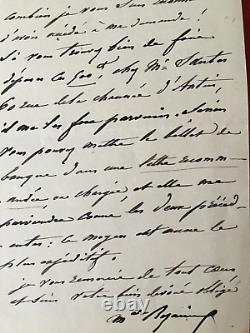 combien je vous suis
d'avoir accédé à ma demande!
Si vous trouvez bien de faire
déposer ces 600 f, chez Mr Santos
60 rue de la chaussée d'Antin,
il me les fera parvenir. Sinon
vous pouvez mettre le billet de
banque dans une lettre recomm-
andée, ou chargée et elle me
parviendra comme les deux précéd-
entes: ce moyen est même le
plus expéditif.
Je vous remercie de tout cœur
et suis votre bien dévoué obligé